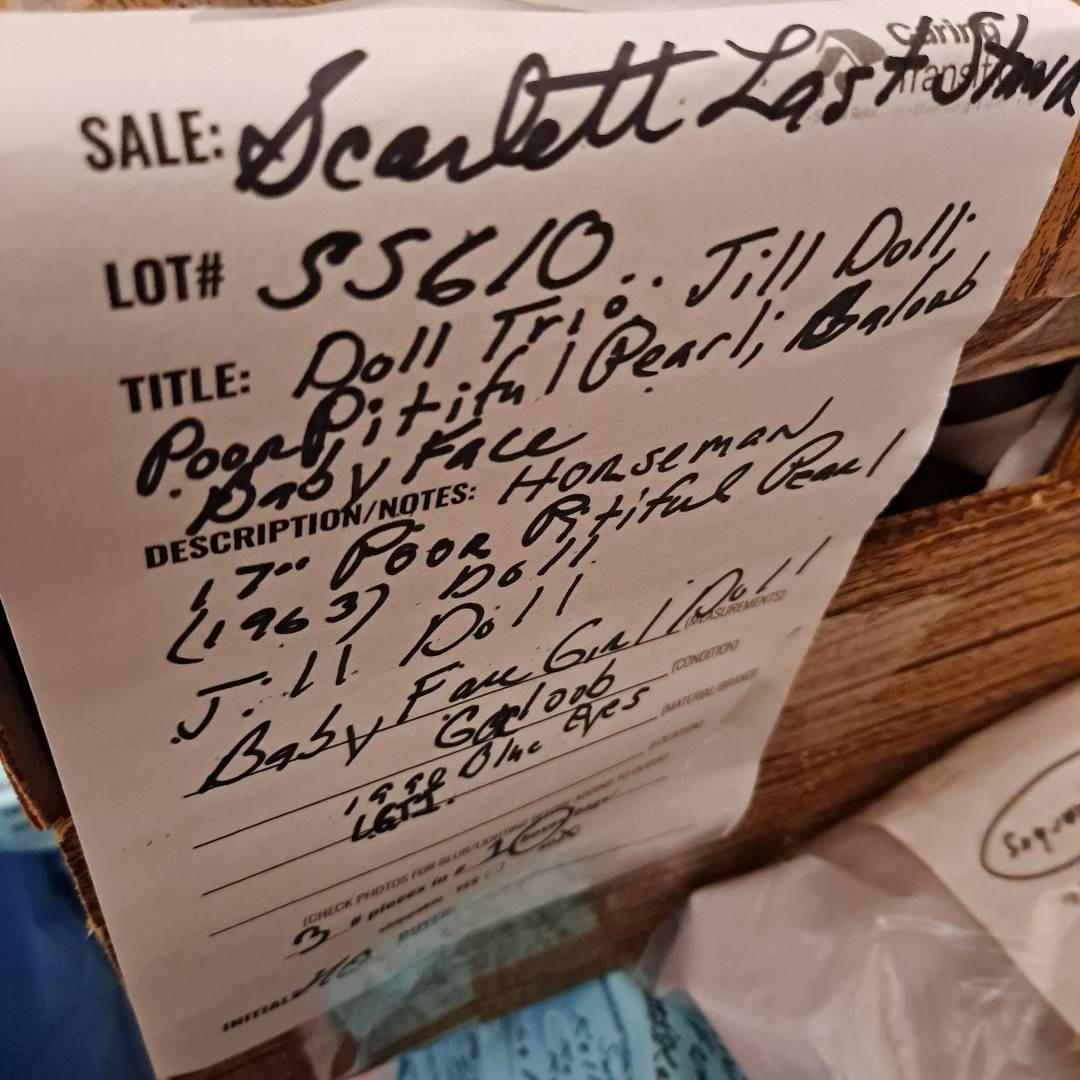 Caring
SALE: Scarlett Last Stand
LOT# SS610
TITLE: Doll Trio: Jill Doll;
Poor Pitiful Pearl; Galoob
Baby Face
DESCRIPTION/NOTES: Horseman
17" Poor Pitiful Pearl
(1963) Doll
Jill Doll
Baby Face Girl Doll
(MEASUREMENTS)
Galoob
(CONDITION)
1990 Blue Eyes
(MATERIAL/BRAND)
LGTI.
(LOCATION)
(CHECK PHOTOS FOR BLUR/LIGHTING BEFORE ADDING TO QUEUE)
3 # pieces in # 1
YES
BUYER
INITIALS